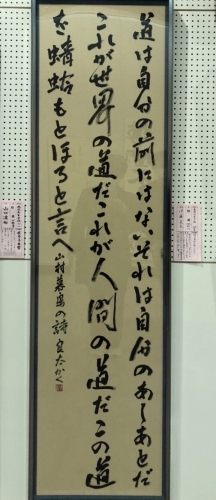 道は自分の前にはないそれは自分のあしあとだ
これが世界の道だこれが人間の道だこの道
を蜻蛉もとほると言へ
山村暮鳥の詩 良太かく